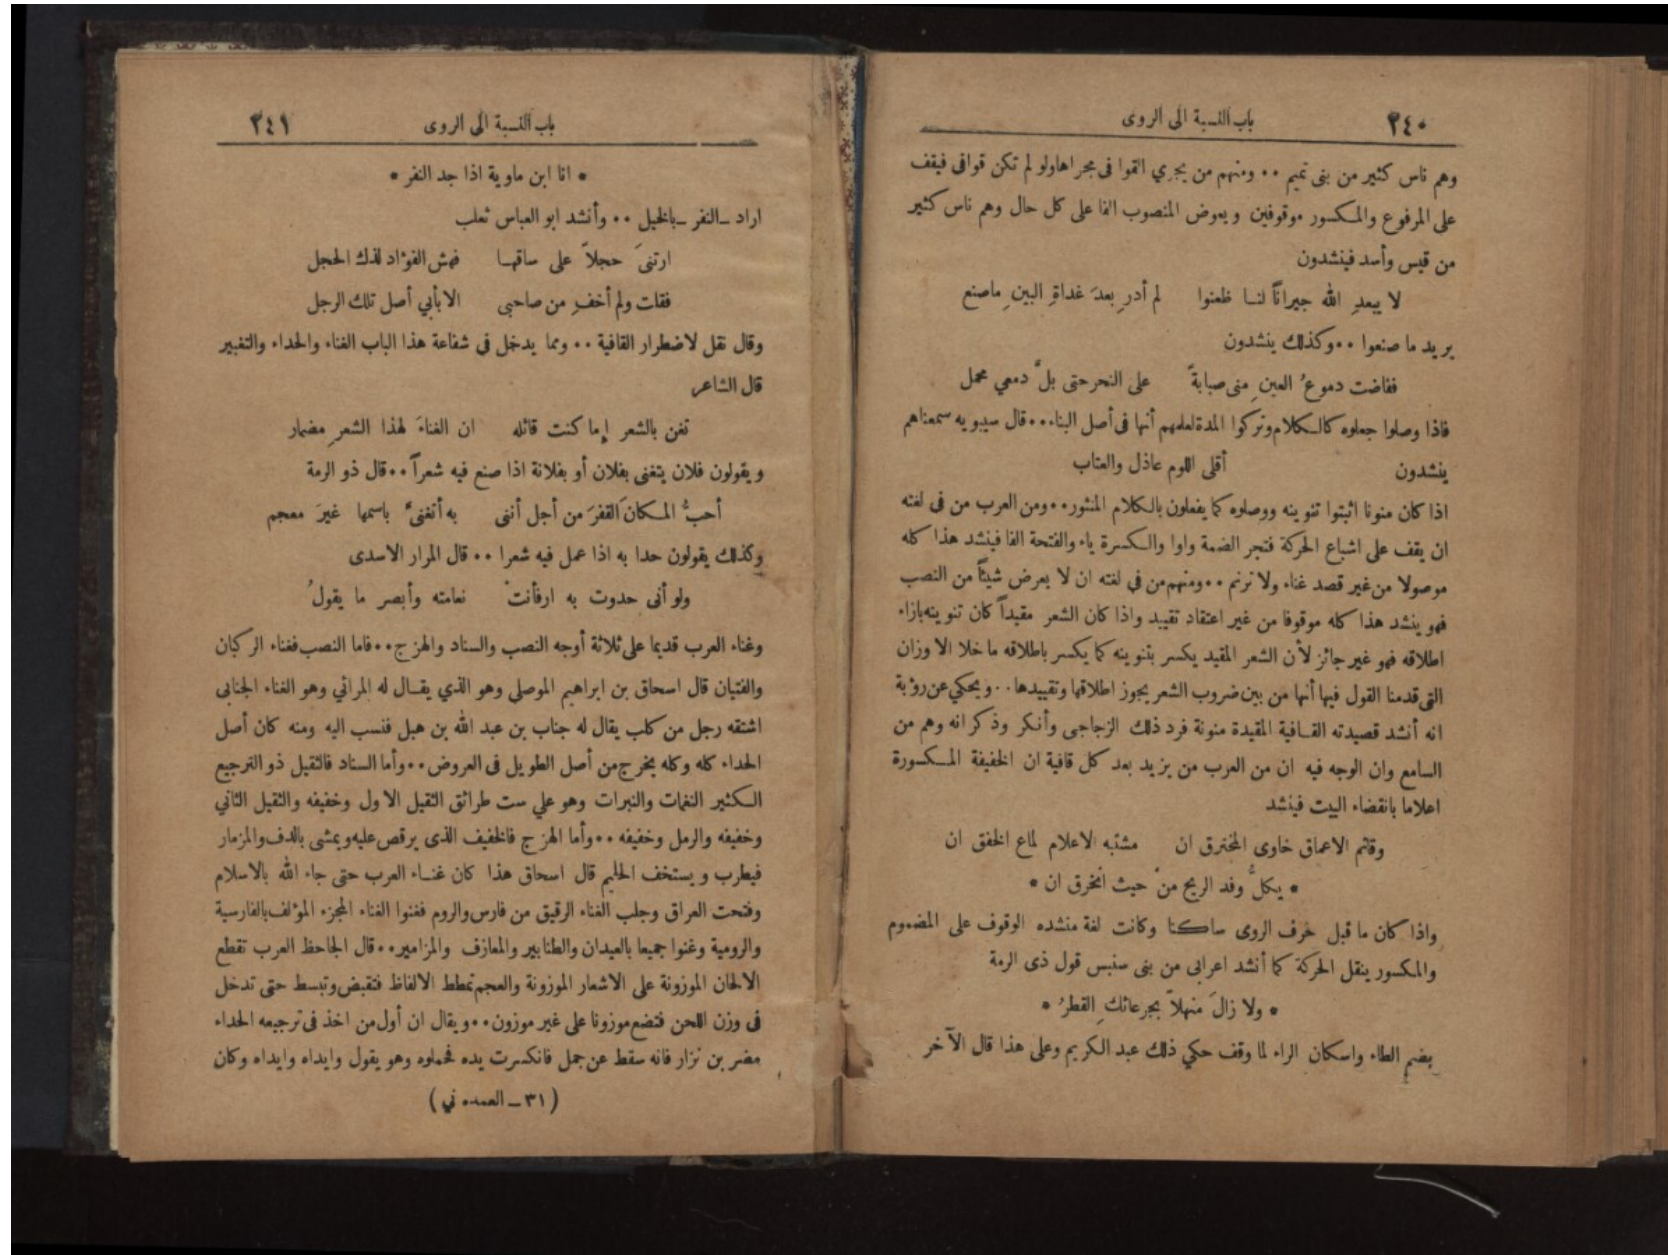 ٢٤٠ باب النسبة الى الروى
وهم ناس كثير من بنى تميم ٠٠ ومنهم من يجرى القوا فى مجراها ولو لم تكن قوافى فيقف
على المرفوع والمكسور موقوفين ويعوض المنصوب الفا على كل حال وهم ناس كثير
من قيس وأسد فينشدون
لا يبعدِ الله جيراناً لنا ظعنوا لم أدرِ بعدَ غداةِ البينِ ماصنع
يريد ما صنعوا ٠٠ وكذلك ينشدون
ففاضت دموعُ العينِ منى صبابةً على النحر حتى بلَّ دمعي محمل
فاذا وصلوا جعلوه كالكلام وتركوا المدة لعلمهم أنها فى أصل البناء ٠٠ قال سيبويه سمعناهم
ينشدون أقلى اللوم عاذل والعتاب
اذا كان منونا اثبتوا تنوينه ووصلوه كما يفعلون بالكلام المنثور ٠٠ ومن العرب من فى لغته
ان يقف على اشباع الحركة فتجر الضمة واوا والكسرة ياء والفتحة الفا فينشد هذا كله
موصولا من غير قصد غناء ولا ترنم ٠٠ ومنهم من في لغته ان لا يعرض شيئاً من النصب
فهو ينشد هذا كله موقوفا من غير اعتقاد تقييد واذا كان الشعر مقيداً كان تنوينه بازاء
اطلاقه فهو غير جائز لأن الشعر المقيد يكسر بتنوينه كما يكسر باطلاقه ما خلا الاوزان
التى قدمنا القول فيها أنها من بين ضروب الشعر يجوز اطلاقها وتقييدها ٠٠ ويحكي عن رؤبة
انه أنشد قصيدته القافية المقيدة منونة فرد ذلك الزجاجى وأنكر وذكر انه وهم من
السامع وان الوجه فيه ان من العرب من يزيد بعد كل قافية ان الخفيفة المكسورة
اعلاما بانقضاء البيت فينشد
وقاتم الاعماق خاوى المخترق ان مشتبه الاعلام لماع الخفق ان
* يكلُّ وفد الريح منْ حيث انخرق ان *
واذا كان ما قبل حرف الروى ساكنا وكانت لغة منشده الوقوف على المضموم
والمكسور ينقل الحركة كما أنشد اعرابى من بنى سنبس قول ذى الرمة
* ولا زالَ منهلاً بجرعائكِ القطرُ *
بضم الطاء واسكان الراء لما وقف حكي ذلك عبد الكريم وعلى هذا قال الآخر
باب النسبة الى الروى ٢٤١
* انا ابن ماوية اذا جد النفر *
اراد ـ النفر ـ بالخيل ٠٠ وأنشد ابو العباس ثعلب
ارتنىَ حجلاً على ساقها فهش الفؤاد لذك الحجل
فقلت ولم أخفِ من صاحبى الا بأبي أصل تلك الرجل
وقال نقل لاضطرار القافية ٠٠ ومما يدخل فى شفاعة هذا الباب الغناء والحداء والتغبير
قال الشاعر
تغن بالشعر إما كنت قائله ان الغناءَ لهذا الشعرِ مضمار
ويقولون فلان يتغنى بفلان أو بفلانة اذا صنع فيه شعراً ٠٠ قال ذو الرمة
أحبُّ المكانَ القفرَ من أجل أننى به أتغنىَّ باسمها غيرَ معجم
وكذلك يقولون حدا به اذا عمل فيه شعرا ٠٠ قال المرار الاسدى
ولو أنى حدوت به ارفأنتْ نعامته وأبصر ما يقولُ
وغناء العرب قديما على ثلاثة أوجه النصب والسناد والهزج ٠٠ فاما النصب فغناء الركبان
والفتيان قال اسحاق بن ابراهيم الموصلى وهو الذي يقال له المراثي وهو الغناء الجنابى
اشتقه رجل من كلب يقال له جناب بن عبد الله بن هبل فنسب اليه ومنه كان أصل
الحداء كله وكله يخرج من أصل الطويل فى العروض ٠٠ وأما السناد فالثقيل ذو الترجيع
الكثير النغمات والنبرات وهو علي ست طرائق الثقيل الاول وخفيفه والثقيل الثاني
وخفيفه والرمل وخفيفه ٠٠ وأما الهزج فالخفيف الذى يرقص عليه ويمشى بالدف والمزمار
فيطرب ويستخف الحليم قال اسحاق هذا كان غناء العرب حتى جاء الله بالاسلام
وفتحت العراق وجلب الغناء الرقيق من فارس والروم فغنوا الغناء المجزء المؤلف بالفارسية
والرومية وغنوا جميعا بالعيدان والطنابير والمعازف والمزامير ٠٠ قال الجاحظ العرب تقطع
الالحان الموزونة على الاشعار الموزونة والعجم تمطط الالفاظ فتقبض وتبسط حتى تدخل
فى وزن اللحن فتضع موزونا على غير موزون ٠٠ ويقال ان أول من اخذ فى ترجيعه الحداء
مضر بن نزار فانه سقط عن جمل فانكسرت يده فحملوه وهو يقول وايداه وايداه وكان
( ٣١ ـ العمده ني )